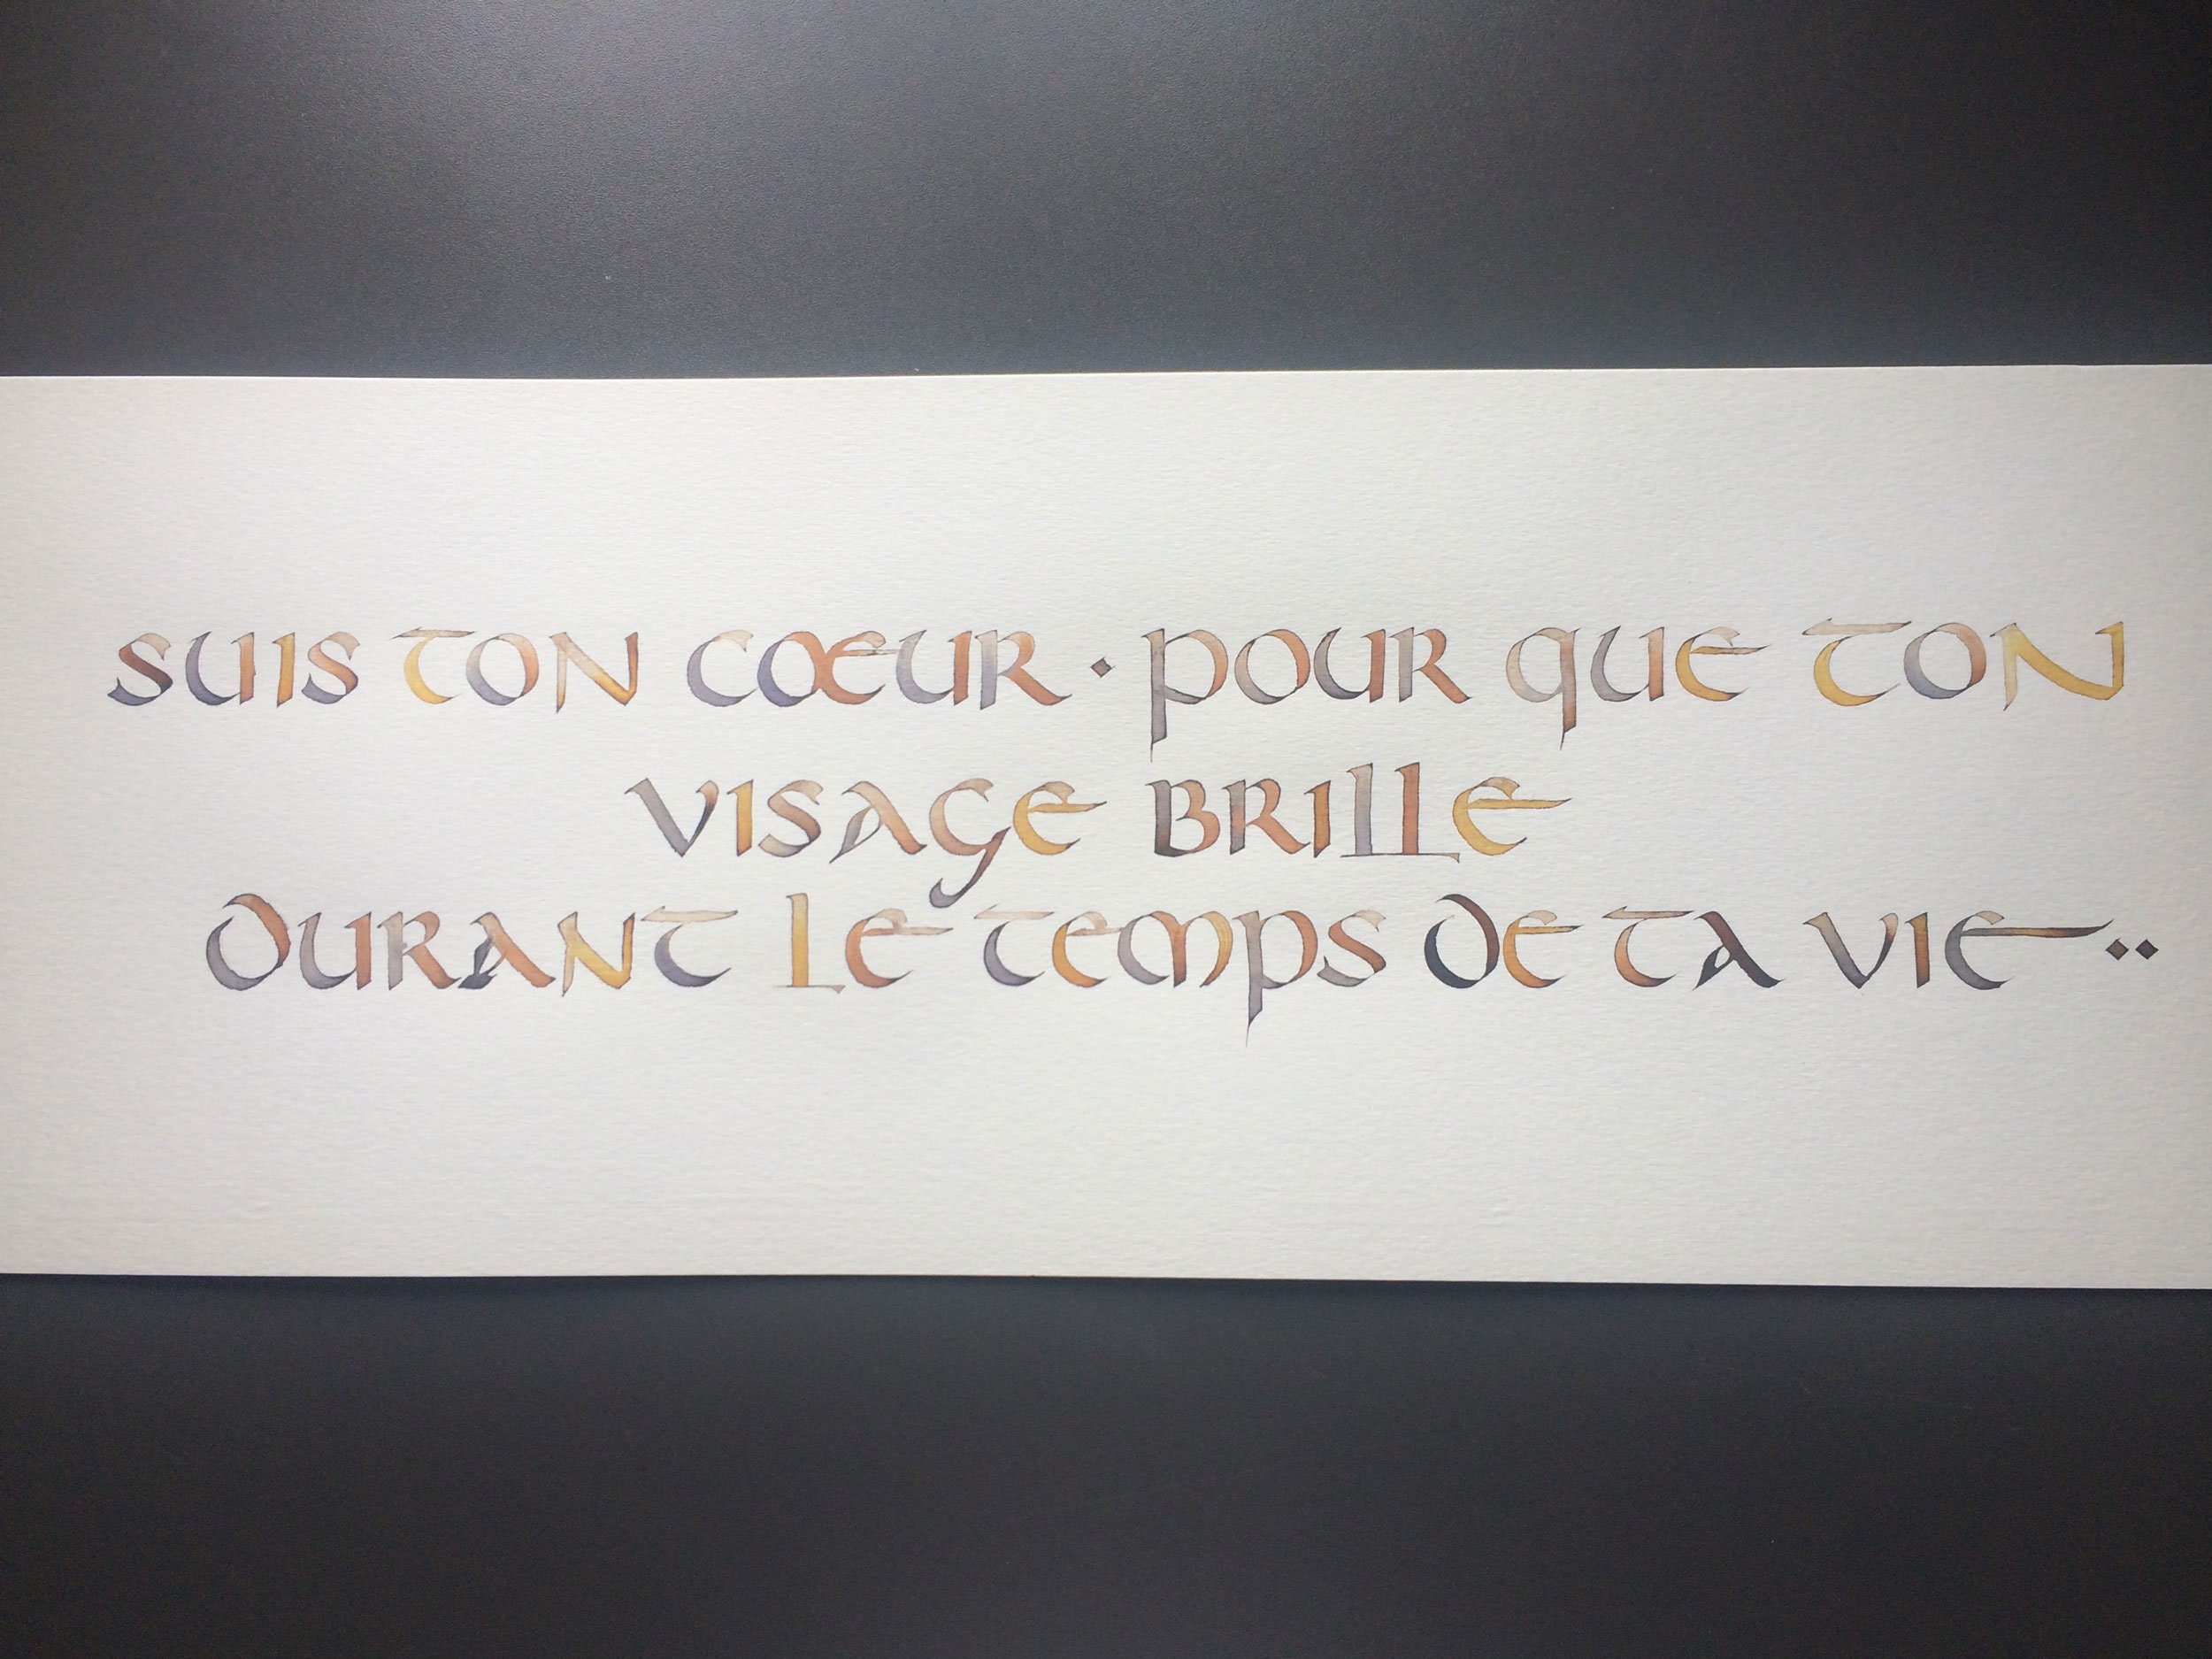 SUIS TON CŒUR · POUR QUE TON
VISAGE BRILLE
DURANT LE TEMPS DE TA VIE··